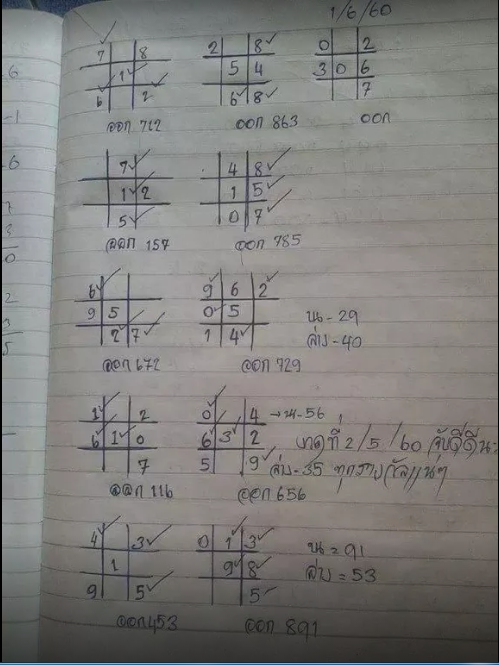 1/6/60
7 8
1
6 2
ออก 712
2 8
5 4
6 8
ออก 863
0 2
3 0 6
7
ออก
7
1 2
5
ออก 157
4 8
1 5
0 7
ออก 785
6
9 5
2 7
ออก 672
9 6 2
0 5
1 4
ออก 729
บน - 29
ล่าง - 40
1 2
6 1 0
7
ออก 116
0 4 → บน - 56
6 3 2
5 9
ออก 656
งวดที่ 2/5/60 จับดีดีนะ
ล่าง - 35 ทุกราง
4 3
1
9 5
ออก 453
0 1 3
9 8
5
ออก 891
บน = 91
ล่าง = 53